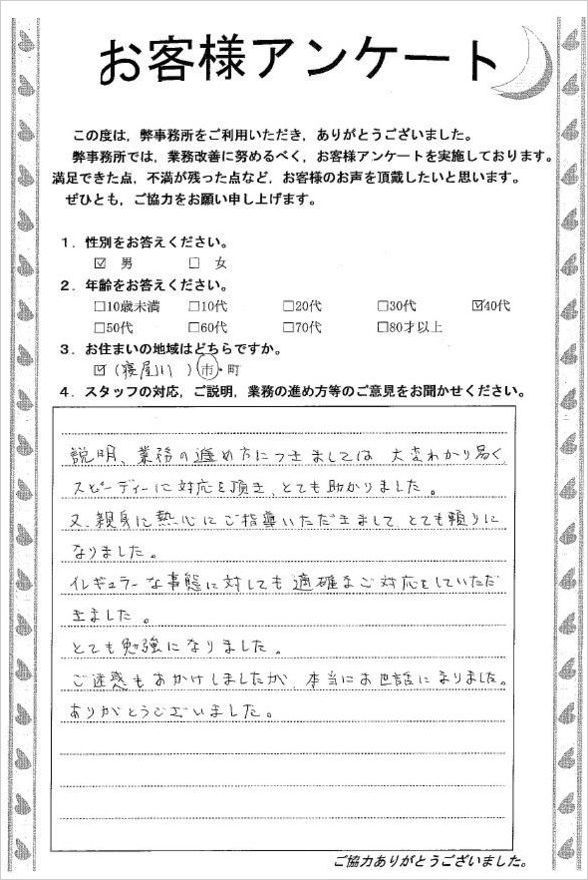 お客様アンケート
この度は，弊事務所をご利用いただき，ありがとうございました。
弊事務所では，業務改善に努めるべく，お客様アンケートを実施しております。
満足できた点，不満が残った点など，お客様のお声を頂戴したいと思います。
ぜひとも，ご協力をお願い申し上げます。
１．性別をお答えください。
☑ 男　□ 女
２．年齢をお答えください。
□10歳未満　□10代　□20代　□30代　☑40代
□50代　□60代　□70代　□80才以上
３．お住まいの地域はどちらですか。
☑（寝屋川　）市・町
４．スタッフの対応，ご説明，業務の進め方等のご意見をお聞かせください。
説明、業務の進め方につきましては 大変わかり易く、
スピーディーに対応を頂き、とても助かりました。
又、親身に熱心にご指導いただきまして、とても頼りに
なりました。
イレギュラーな事態に対しても 適確なご対応をしていただ
きました。
とても勉強になりました。
ご迷惑もおかけしましたが、本当にお世話になりました。
ありがとうございました。
ご協力ありがとうございました。